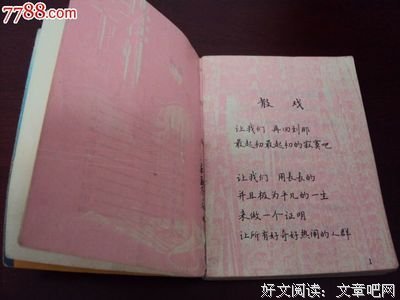 7788.com
散戏
让我们 再回到那
最起初最起初的寂寞吧
让我们 用长长的
并且极为平凡的一生
来做一个证明
让所有好奇好热闹的人群
1
好文阅读：文章吧网